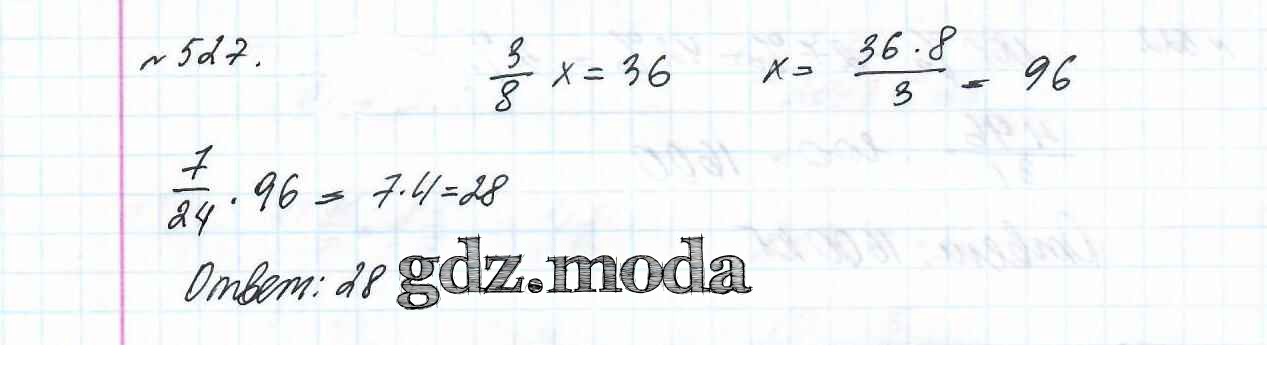 № 527. 3/8 x = 36 x = 36·8/3 = 96
7/24 · 96 = 7·4 = 28
Ответ: 28
gdz.moda